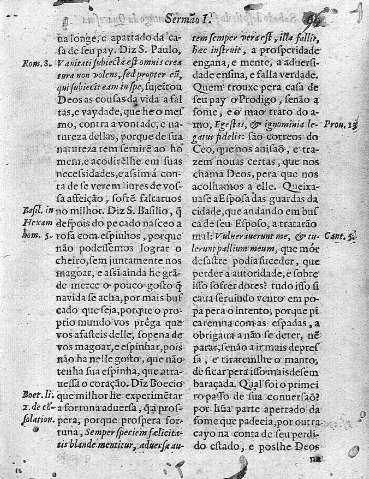 Sermão I.
na longe, e apartado da ca-
sa de seu pay. Diz S. Paulo,
Rom. 8. Vanitati subiecta est omnis crea
tura non volens, sed propter eũ,
qui subiecit eam in spe, sujeitou
Deos as cousas da vida a fal-
tas, e vaydade, que he o mes-
mo, contra a vontade, e na-
tureza dellas, porque de sua
natureza tem servirẽ ao ho
mem, e acodirẽlhe em suas
necessidades, e assim à con-
ta de se verem livres de vos-
sa affeição, sofrẽ faltarvos
Basil. in no milhor. Diz S. Basilio, q̃
Hexam despois do pecado nasceo a
hom. 5. rosa com espinhos, porque
não podessemos lograr o
cheiro, sem juntamente nos
magoar, e assi ainda he grã-
de merce o pouco gosto q̃
na vida se acha, por mais bus
cado que seja, porque o pro-
prio mundo vos prèga que
vos afasteis delle, so pena de
vos magoar, e espinhar, pois
não ha nelle gosto, que não
tenha sua espinha, que atra-
vessa o coração. Diz Boecio
Boet. li. que milhor he experimẽtar
2. de cõ a fortuna adversa, q̃ a pros-
solation. pera, porque prospera for
tuna, Semper specie fælicita-
tis blande mentitur, adversa au-
tem semper vera est, illa fallit,
hæc instruit, a prosperidade
engana, e mente, a adversi-
dade ensina, e falla verdade.
Quem trouxe pera casa de
seu pay o Prodigo, senão a
fome, e o mao trato do a-
mo, Egestas, & ignominia le- Prov. 13
gatus fidelis: são correos do
Ceo, que nos avisão, e tra-
zem novas certas, que nos
chama Deos, pera que nos
acolhamos a elle. Queixa-
vase a Esposa das guardas da
cidade, que andando em bus
ca de seu Esposo, a tratarão
mal: Vulneraverunt me, & tu- Cant. 5.
lerunt pallium meum, que mór
desastre podia suceder, que
perder a autoridade, e sobre
isso sofrer dores? tudo isso fi
cava servindo vento em po-
pa pera o intento, porque pi
caremna com as espadas, a
obrigava a não se deter, nẽ
parar, senão a ir mais depres
sa, e tiraremlhe o manto,
de ficar pera isso mais desem
baraçada. Qual foi o primei
ro passo de sua conversaõ?
por hũa parte apertado da
fome que padecia, por outra
cayo na conta de seu perdi-
do estado, e poslhe Deos
na